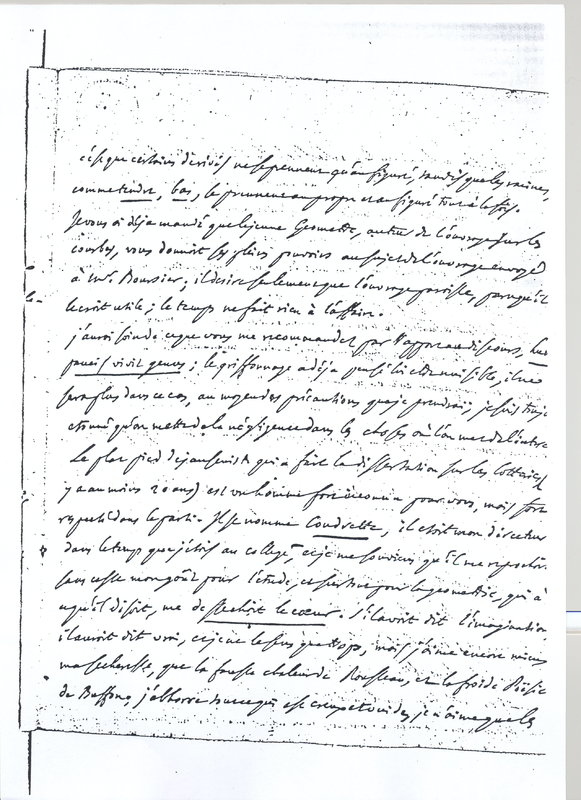 c'est que certains dérivés ne se prennent qu'au figuré, tandis que les racines,
comme tendre, bas, se prennent au propre et au figuré tout à la fois.
Je vous ai déja mandé que le jeune Geometre, auteur de l'ouvrage sur les
courbes, vous donnoit ses pleins pouvoirs au sujet de l'ouvrage envoyé
à Mr. Boursier; il desire seulement que l'ouvrage paroisse, parce qu'il
le croit utile; le temps ne fait rien à l'affaire.
j'aurai soin de ce que vous me recommandez par rapport au discours, hunc
paucis vivit genus; le griffonnage a déja pensé lui etre nuisible, il ne
sera plus dans ce cas, au moyen des précautions que je prendrai; je suis
etonné qu'on mette de la négligence dans les choses où l'on met de l'interet
Le plat pied de janseniste qui a fait la dissertation sur les
y a au moins 20 ans) est un homme fort inconnu pour vous, mais fort
respecté dans le parti. Il se nomme Coudrette, il etoit mon directeur
dans le temps que j'étois au college, et je me souviens qu'il me reprochoit
sans cesse mon goût pour l'étude, et surtout pour la geometrie, qui à
ce qu'il disoit, me dessechoit le cœur. S'il avoit dit l'imagination
il auroit dit vrai, et je ne le sens que trop, mais j'aime encore mieux
ma secheresse, que la fausse chaleur de Rousseau, et la froide Poësie
de Buffon; j'abhorre tout ce qui